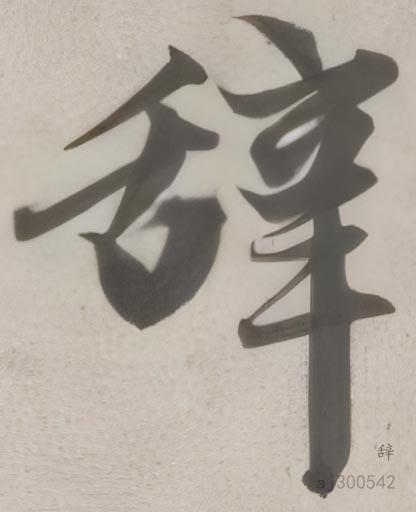 辞
辞
aj300542